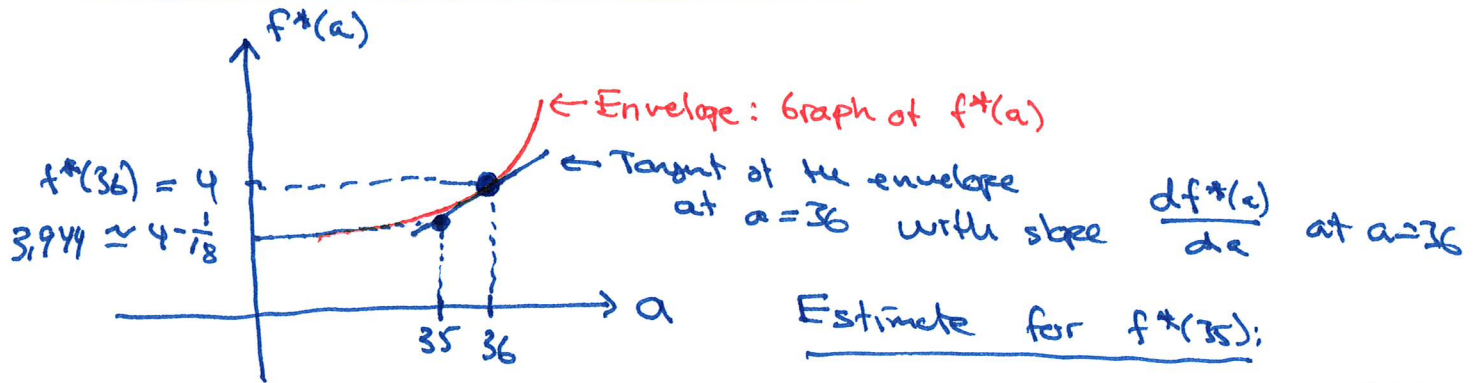 f*(a)
← Envelope: Graph of f*(a)
f*(36) = 4
← Tangent of the envelope
at a=36 with slope df*(a)/da at a=36
3,944 ≃ 4-1/18
a
35 36
Estimate for f*(35):